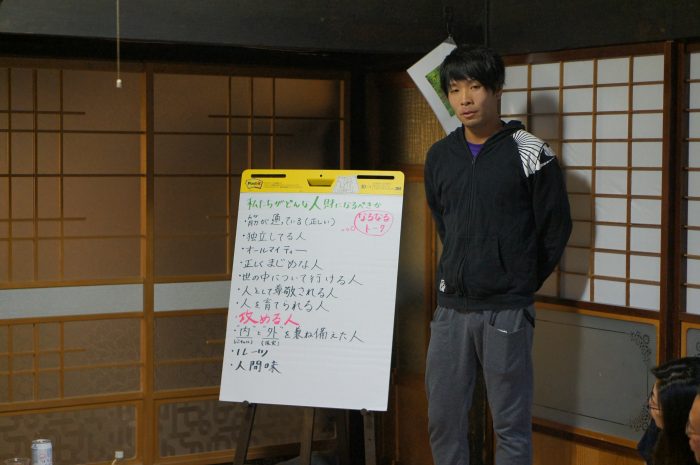 私たちがどんな人財になるべきか
なるなる
トーク
・筋が通っている(正しい)
・独立してる人
・オールマイティー
・正しくまじめな人
・世の中について行ける人
・人として尊敬される人
・人を育てられる人
・攻める人
・"内"と"外"を兼ね備えた人
・ルーツ
・人間味